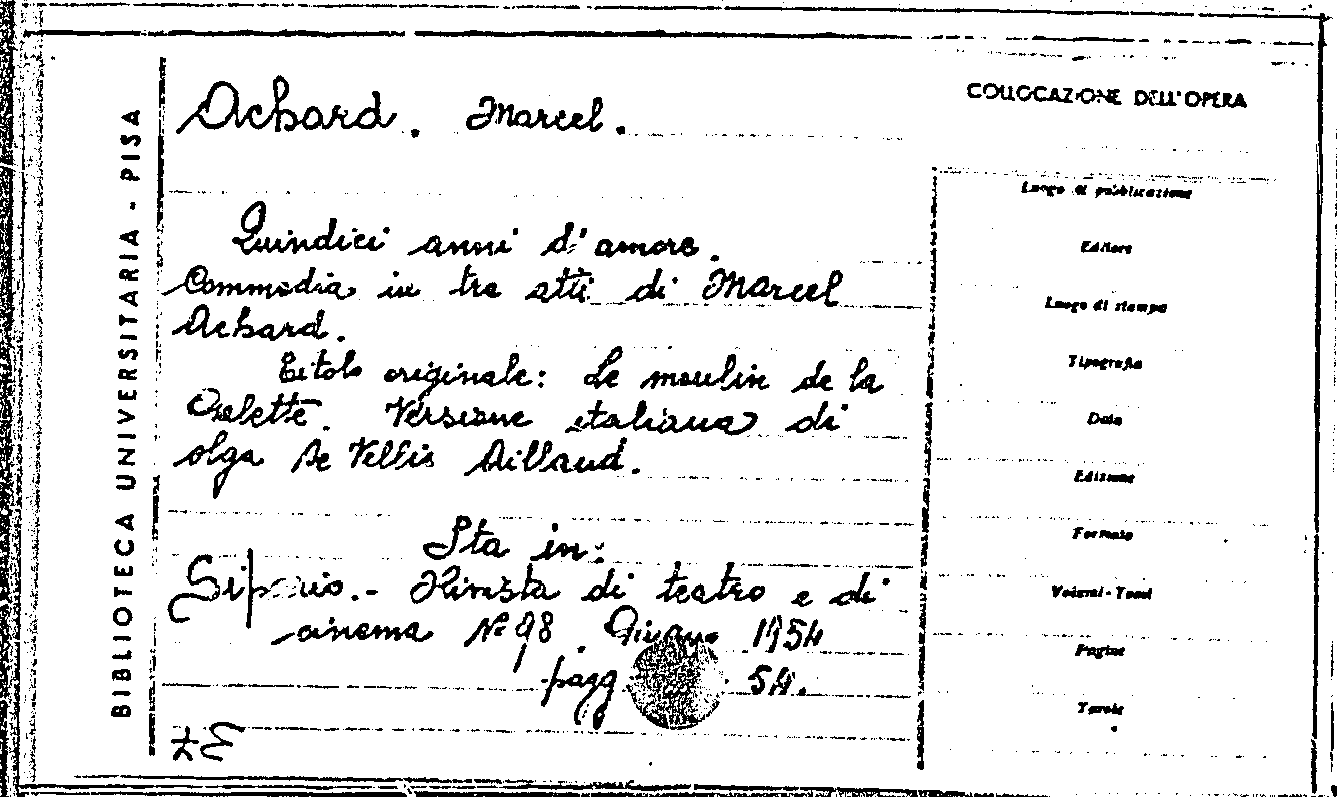 BIBLIOTECA UNIVERSITARIA - PISA
Achard. Marcel.
Quindici anni d'amore.
Commedia in tre atti di Marcel
Achard.
Titolo originale: Le moulin de la
Galette. Versione italiana di
Olga De Vellis Aillaud.
Sta in:
Sipario.- Rivista di teatro e di
cinema N° 98. Giugno 1954
pagg 54.
COLLOCAZIONE DELL'OPERA
Luogo di pubblicazione
Editore
Luogo di stampa
Tipografia
Data
Edizione
Formato
Volumi - Tomi
Pagine
Tavole